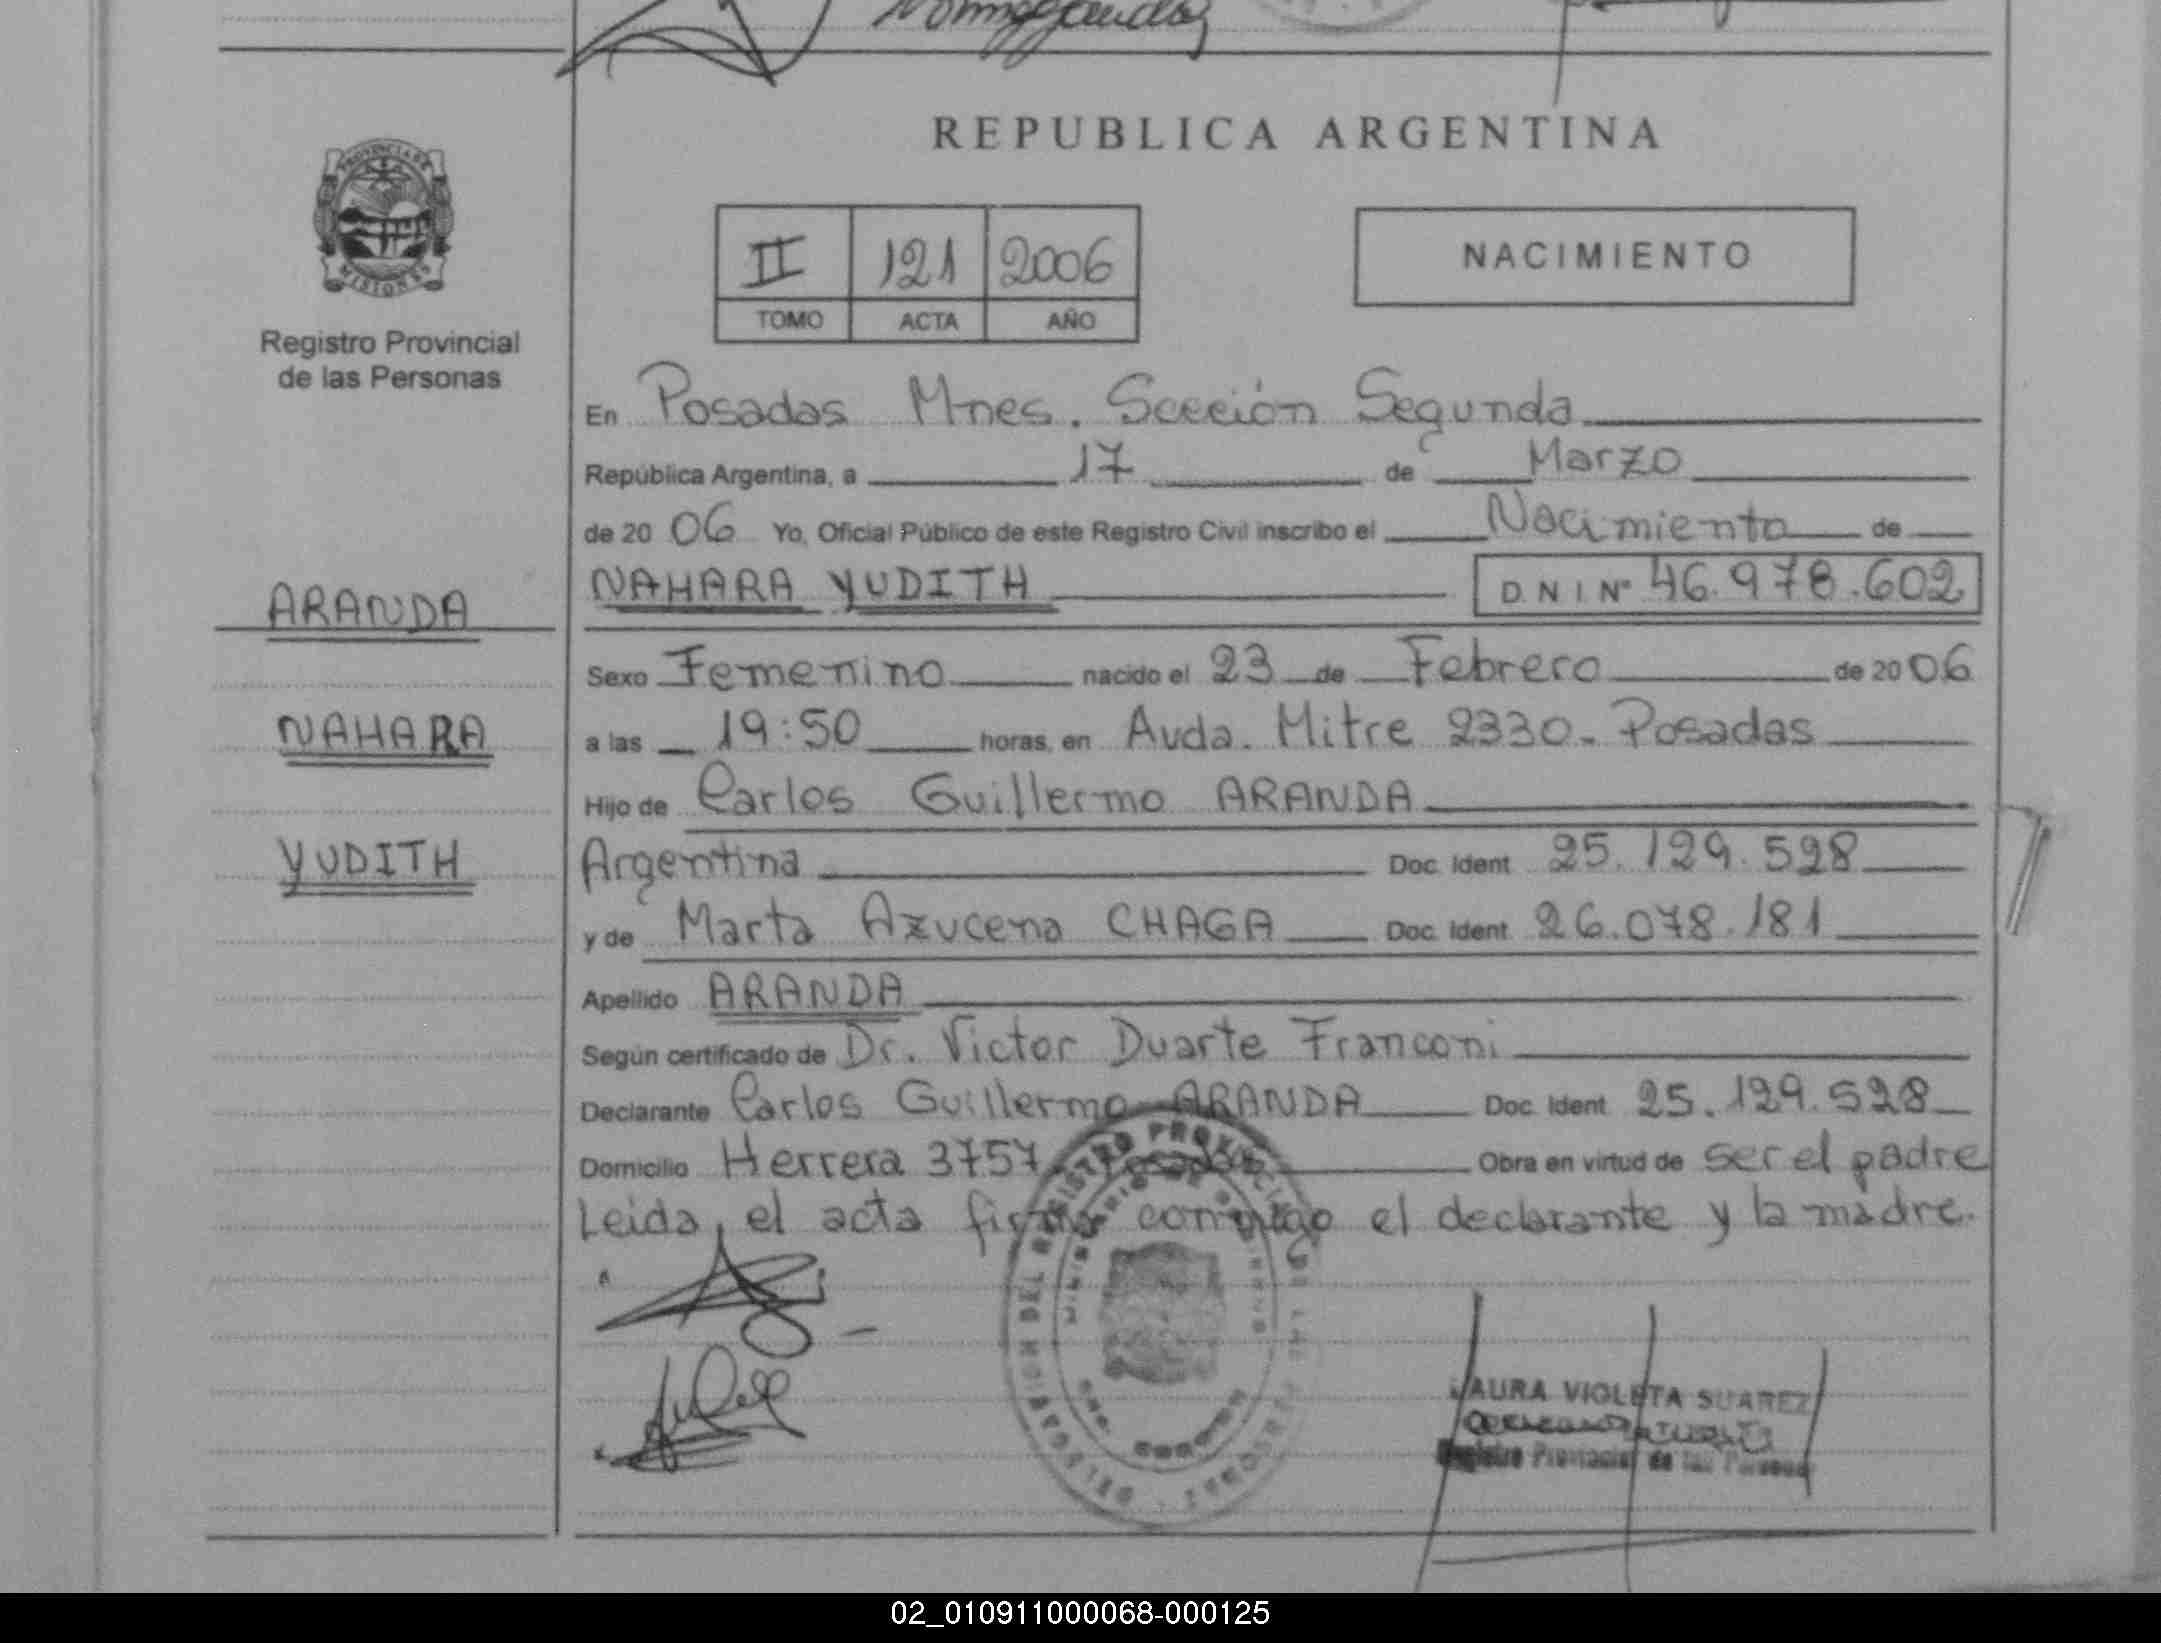 REPUBLICA ARGENTINA
PROVINCIA DE
MISIONES
Registro Provincial
de las Personas
II 121 2006
TOMO ACTA AÑO
NACIMIENTO
En Posadas Mnes. Sección Segunda
República Argentina, a 17 de Marzo
de 20 06 Yo, Oficial Público de este Registro Civil inscribo el Nacimiento de
ARANDA
NAHARA YUDITH D.N.I. Nº 46.978.602
Sexo Femenino nacido el 23 de Febrero de 20 06
NAHARA
a las 19:50 horas, en Avda. Mitre 2330- Posadas
Hijo de Carlos Guillermo ARANDA
YUDITH
Argentina Doc. Ident 25.129.528
y de Marta Azucena CHAGA Doc. Ident. 26.078.181
Apellido ARANDA
Según certificado de Dr. Victor Duarte Franconi
Declarante Carlos Guillermo ARANDA Doc. Ident 25.129.528
Domicilio Herrera 3757 Posadas Obra en virtud de ser el padre
Leida, el acta firma conmigo el declarante y la madre.
DELEGACION DEL REGISTRO PROVINCIAL DE LAS PERSONAS
LAURA VIOLETA SUAREZ
Registro Provincial de las Personas
02_010911000068-000125